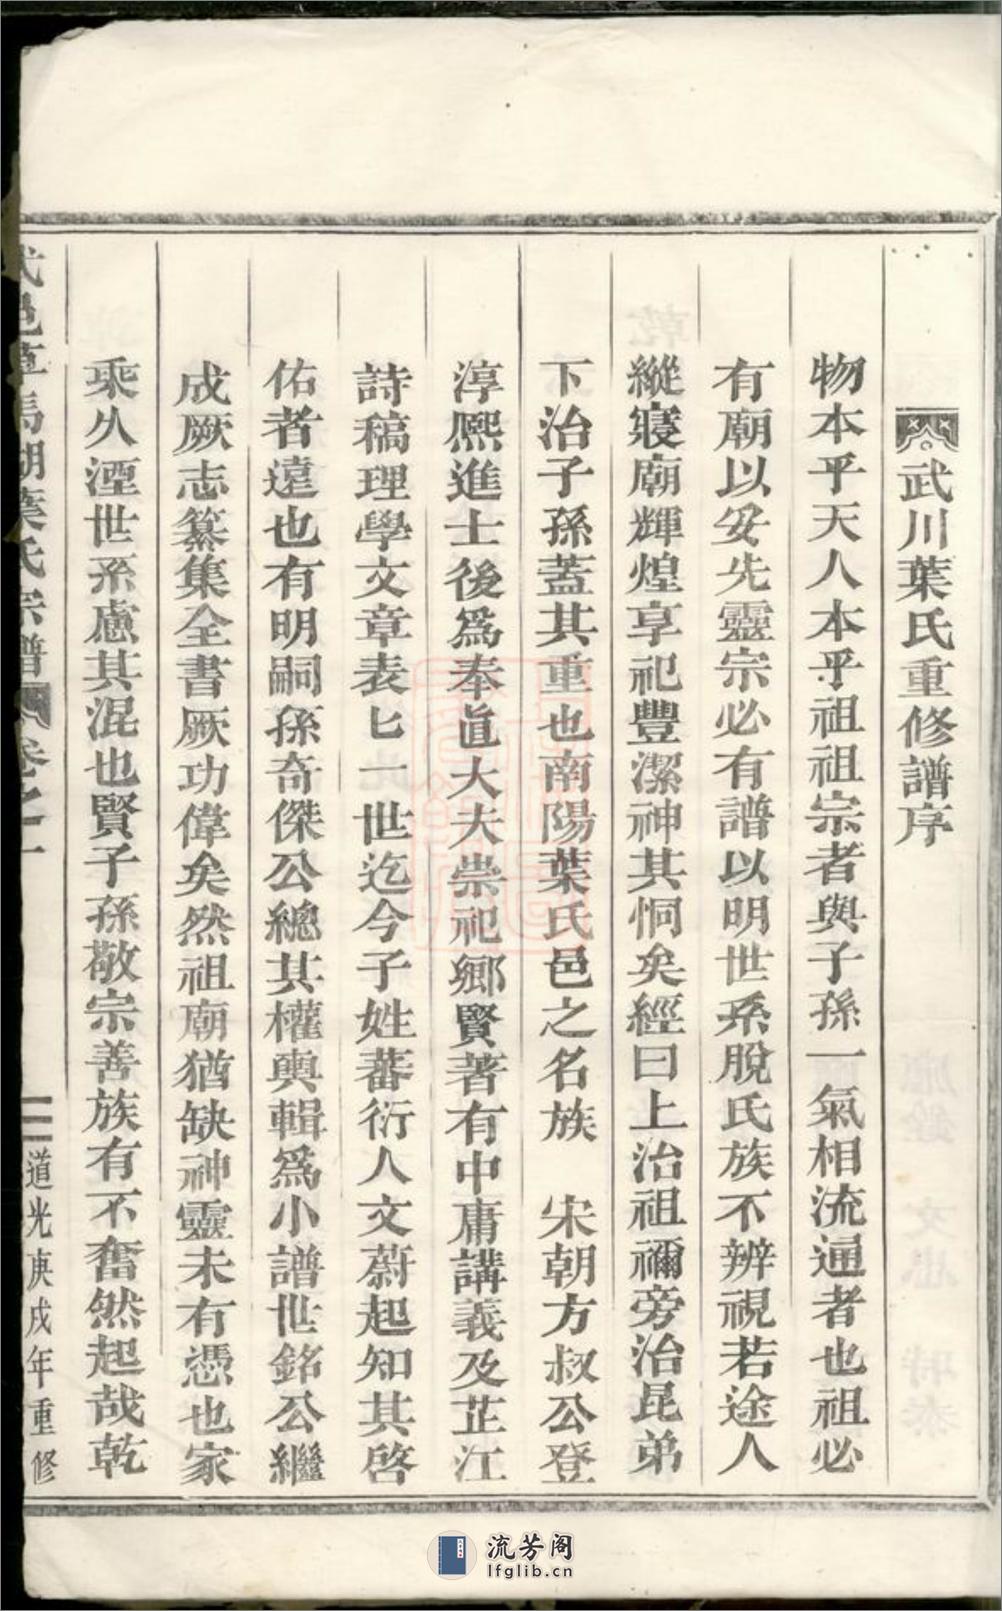 武川葉氏重修譜序
物本乎天人本乎祖祖宗者與子孫一氣相流通者也祖必
有廟以妥先靈宗必有譜以明世系脫氏族不辨視若途人
縱寢廟輝煌享祀豐潔神其恫矣經曰上治祖禰旁治昆弟
下治子孫蓋其重也南陽葉氏邑之名族 宋朝方叔公登
淳熙進士後爲奉直大夫崇祀鄉賢著有中庸講義及芷江
詩稿理學文章表匕一世迄今子姓蕃衍人文蔚起知其啓
佑者遠也有明嗣孫奇傑公總其權輿輯爲小譜世銘公繼
成厥志纂集全書厥功偉矣然祖廟猶缺神靈未有憑也家
乘久湮世系慮其混也賢子孫敬宗善族有不奮然起哉乾
馬湖葉氏宗譜 卷之一 二 道光庚戌年重修
流芳阁
lfglib.cn